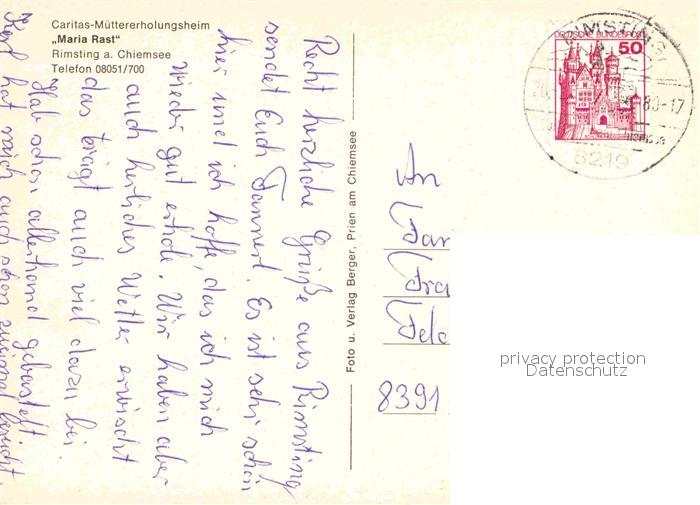 Caritas-Müttererholungsheim
„Maria Rast"
Rimsting a. Chiemsee
Telefon 08051/700
Recht herzliche Grüße aus Rimsting
sendet Euch Tannert. Es ist sehr schön
hier und ich hoffe, das ich mich
wieder gut erhole. Wir haben aber
auch herliches Wetter erwischt
das trägt auch viel dazu bei
Hab schon allerhand gebastelt.
Karl hat mich auch schon zweimal besucht.
Foto u. Verlag Berger, Prien am Chiemsee
DEUTSCHE BUNDESPOST
50
RIMSTING
80-17
8219
An
Fam
Fra
8391
privacy protection
Datenschutz